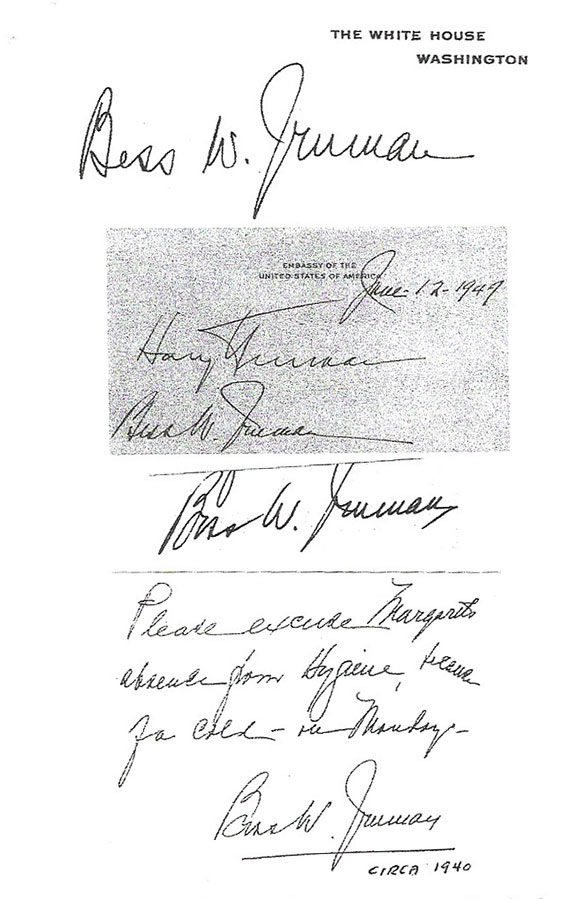 THE WHITE HOUSE
WASHINGTON
Bess W. Truman
EMBASSY OF THE
UNITED STATES OF AMERICA
June - 12 - 1947
Harry Truman
Bess W. Truman
Bess W. Truman
Please excuse Margaret's
absence from Hygiene, because
of a cold - on Monday -
Bess W. Truman
CIRCA 1940